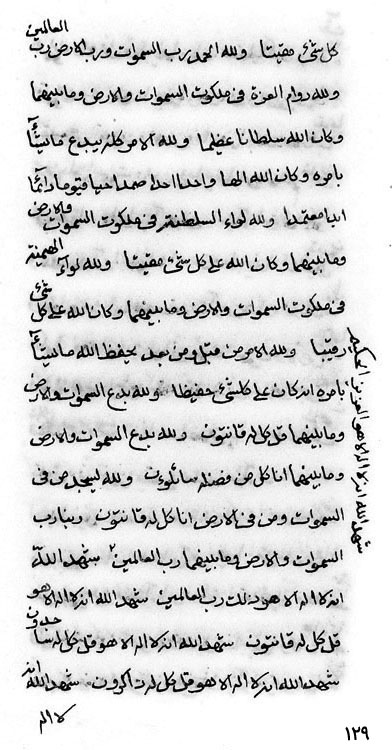 كل شئ مقيتا ولله الحمد رب السموات ورب الارض رب العالمين
ولله دوام العزة في ملكوت السموات والارض وما بينهما
وكان الله سلطانا عظيما ولله الامر كله يبدع ما يشآء
بامره وكان الله الها واحدا احدا صمدا حيا قيوما دآئما
ابدا معتمدا ولله لوآء السلطنة في ملكوت السموات والارض
وما بينهما وكان الله على كل شئ مقيتا ولله لوآء الهيمنة
في ملكوت السموات والارض وما بينهما وكان الله على كل شئ
رقيبا ولله الامر من قبل ومن بعد يحفظ الله ما يشآء
بامره انه كان على كلشئ حفيظا ولله بدع السموات والارض
وما بينهما قل كل له قانتون ولله بدع السموات والارض
وما بينهما انا كل من فضله سائلون ولله يسجد من في
السموات ومن في الارض انا كل له قانتون وبنا رب
السموات والارض وما بينهما رب العالمين شهد الله
انه لا اله الا هو ذلك رب العالمين شهد الله انه لا اله الا هو
قل كل له قانتون شهد الله انه لا اله الا هو قل كل له ساجدون
شهد الله انه لا اله الا هو قل كل له ذاكرون شهد الله انه
لا اله
شهد الله انه لا اله الا هو العزيز الحكيم
١٢٩